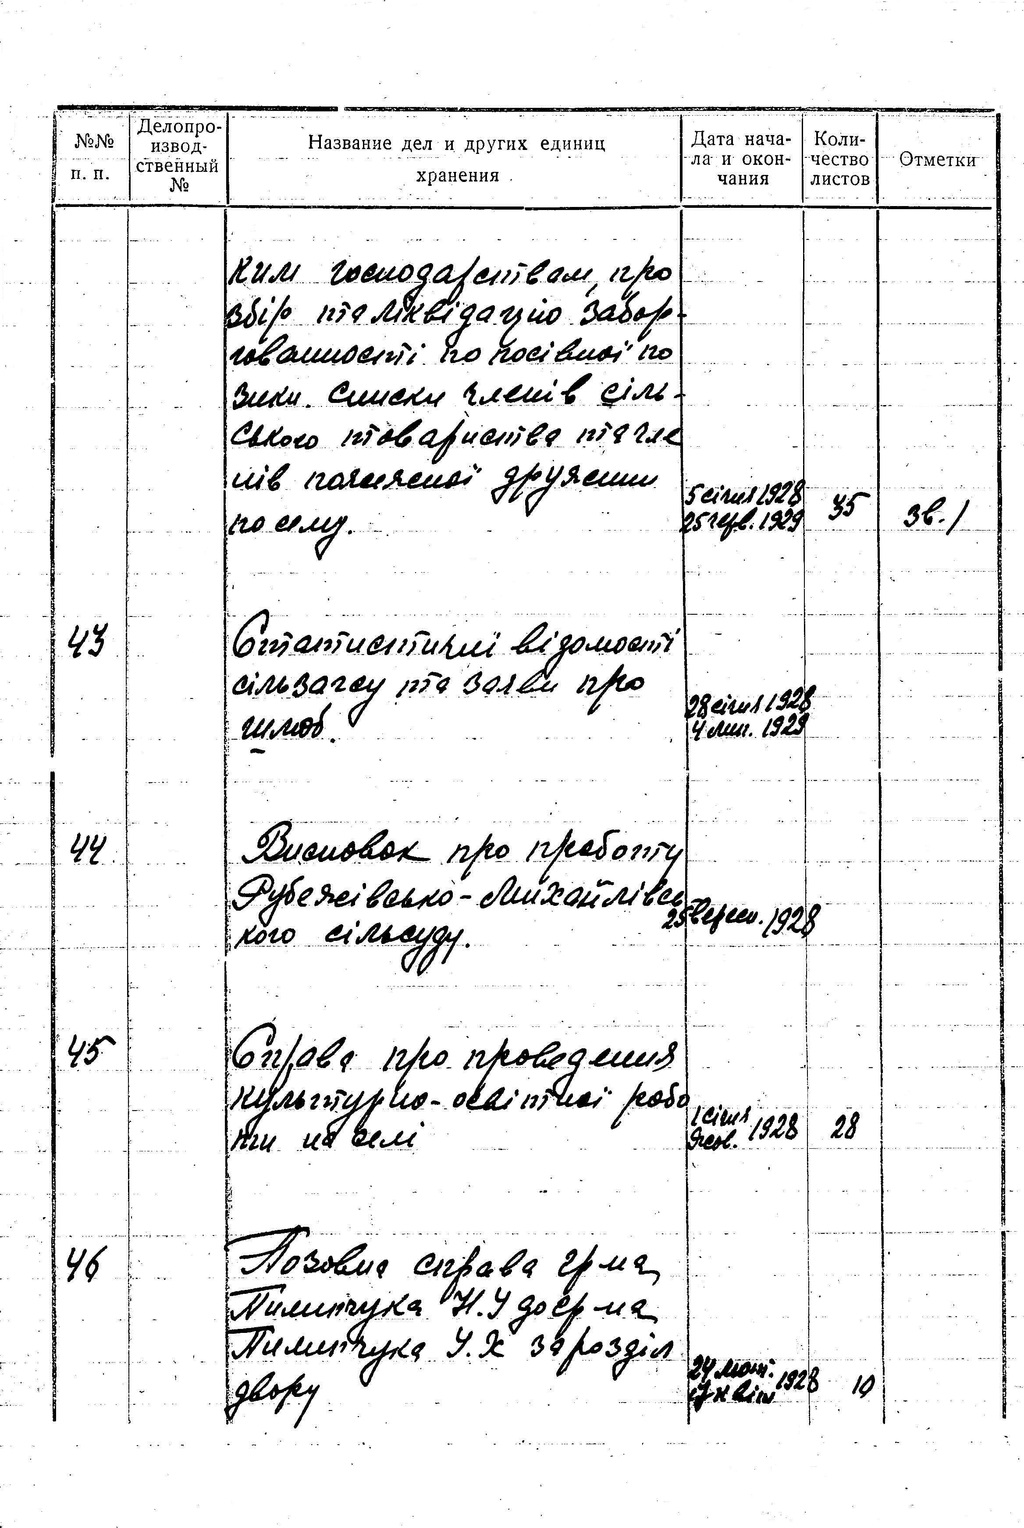 №№ п. п.
Делопроизводственный №
Название дел и других единиц хранения
Дата начала и окончания
Количество листов
Отметки
ким господарствам, про
збір та ліквідацію забор-
гованности по посівної по
зики. Списки членів сіль-
ського товариства та чле
нів пожежної дружини
по селу.
5 січня 1928
25 черв. 1929
35
Зв. 1
43
Статистичні відомості
сільзагсу та заяви про
шлюб.
28 січня 1928
4 лип. 1929
44
Висновок про роботу
Рубежівсько-Михайлівсь
кого сільсуду.
25 вересн. 1928
45
Справа про проведення
культурно-освітної робо
ти на селі
1 січня
9 жов. 1928
28
46
Позовна справа гр-на
Пилипчука Н.У до гр-на
Пилипчука У.Х за розділ
двору
24 лют.
17 квіт 1928
10